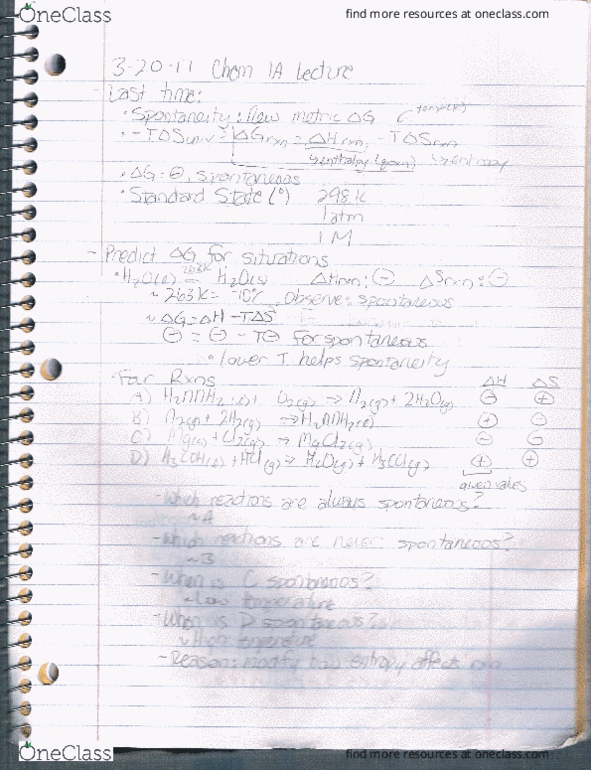 OneClass
find more resources at oneclass.com
3-20-11 Chem 1A Lecture
Last time:
• Spontaneity: New metric ΔG
• -TΔSuniv = ΔGrxn = ΔHrxn - TΔSrxn
↳enthalpy ↳entropy
• ΔG: ⊖, spontaneous
• Standard State (°) 298 K
1 atm
1 M
- Predict ΔG for situations
• H₂O(l) 263K H₂O(s) ΔHrxn: ⊖ ΔSrxn: ⊖
~ 263K = -10°C, Observe: spontaneous
~ ΔG = ΔH - TΔS
⊖ = ⊖ - T⊖ for spontaneous
• lower T helps spontaneity
• Four Rxns ΔH ΔS
A) H₂NNH₂ O₂(g) → N₂(g) + 2H₂O(g) ⊖ ⊕
B) N₂(g) + 2H₂(g) → H₂NNH₂(l) ⊕ ⊖
C) Mg(s) + Cl₂(g) → MgCl₂ ⊖ ⊖
D) + HCl(g) → H₂O(g) + H₃CCl(g) ⊕ ⊕
given values
- Which reactions are always spontaneous?
~ A
- Which reactions are never spontaneous?
~ B
- When is C spontaneous?
~ Low temperature
- When is D spontaneous?
~ High temperature
- Reason: modify how entropy affects rxn
OneClass
find more resources at oneclass.com